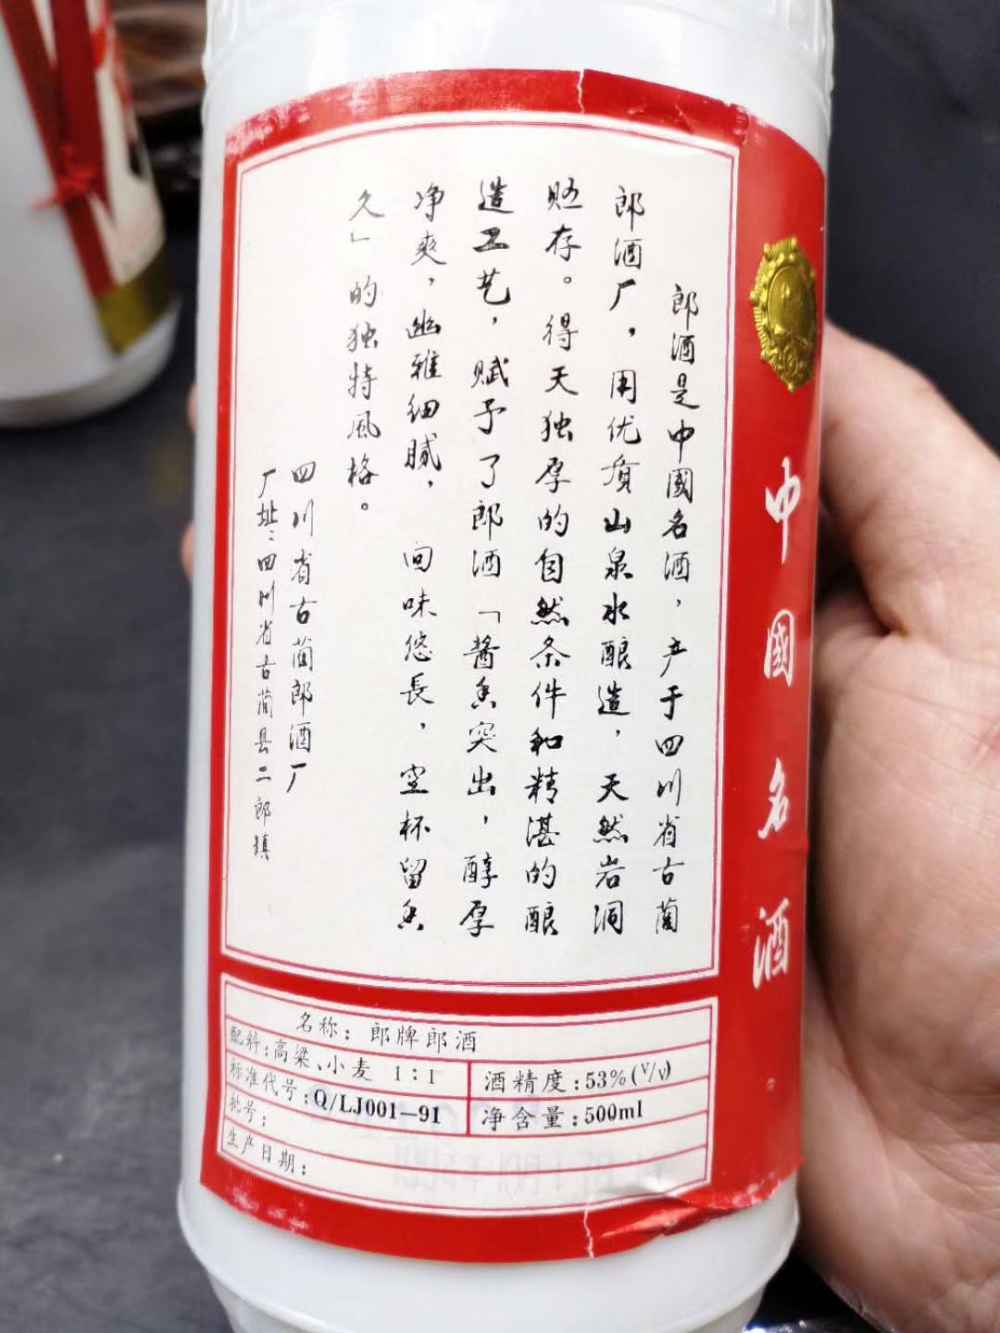 郎酒是中國名酒，产于四川省古蔺
郎酒厂，用优质山泉水酿造，天然岩洞
贮存。得天独厚的自然条件和精湛的酿
造工艺，赋予了郎酒「酱香突出，醇厚
净爽，幽雅细腻，回味悠長，空杯留香
久」的独特風格。
四川省古蔺郎酒厂
厂址：四川省古蔺县二郎镇
中國名酒
名称：郎牌郎酒
配料：高粱、小麦 1：1
酒精度：53%(V/V)
标准代号：Q/LJ001-91
净含量：500ml
批号：
生产日期：